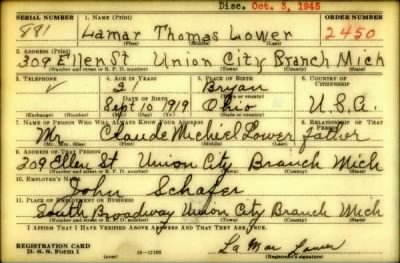 Disc. Oct. 3, 1945
SERIAL NUMBER 1. NAME (Print) ORDER NUMBER
891 Lamar Thomas Lower 2450
(First) (Middle) (Last)
2. ADDRESS (Print)
309 Ellen St Union City Branch Mich
(Number and street or R. F. D. number) (Town) (County) (State)
3. TELEPHONE 4. AGE IN YEARS 5. PLACE OF BIRTH 6. COUNTRY OF CITIZENSHIP
✓ 21 Bryan
DATE OF BIRTH (Town or county)
Sept 10 1919 Ohio U.S.A.
(Exchange) (Number) (Mo.) (Day) (Yr.) (State or country)
7. NAME OF PERSON WHO WILL ALWAYS KNOW YOUR ADDRESS 8. RELATIONSHIP OF THAT PERSON
Mr Claude Michiel Lower father
(Mr., Mrs., Miss) (First) (Middle) (Last)
9. ADDRESS OF THAT PERSON
309 Ellen St Union City Branch Mich
(Number and street or R. F. D. number) (Town) (County) (State)
10. EMPLOYER'S NAME
John Schafer
11. PLACE OF EMPLOYMENT OR BUSINESS
South Broadway Union City Branch Mich
(Number and street or R. F. D. number) (Town) (County) (State)
I AFFIRM THAT I HAVE VERIFIED ABOVE ANSWERS AND THAT THEY ARE TRUE.
REGISTRATION CARD
D. S. S. FORM 1 (over) 16-17105
La Mar Lower
(Registrant's signature)